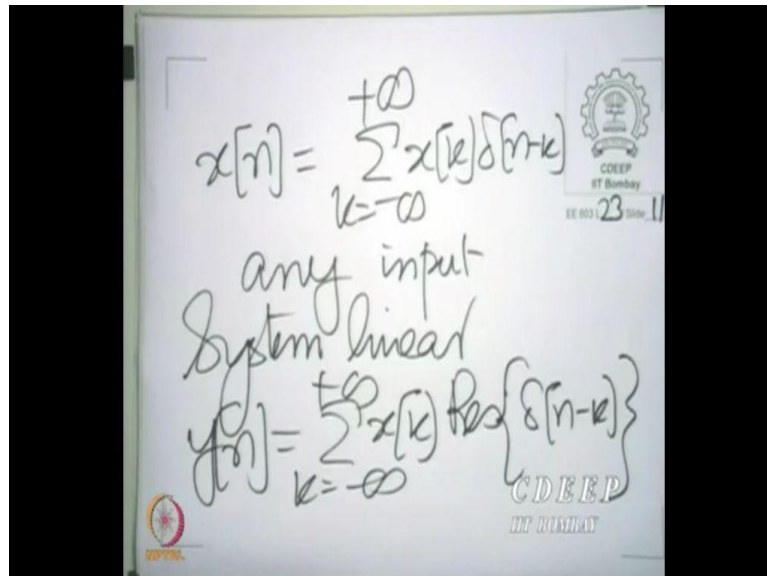 x[n] = +∞ Σ k=-∞ x[k] δ[n-k]
CDEEP
IIT Bombay
EE 603 L 23 Slide 11
any input
System linear
y[n] = +∞ Σ k=-∞ x[k] Res{δ[n-k]}
CDEEP
IIT BOMBAY
NPTEL